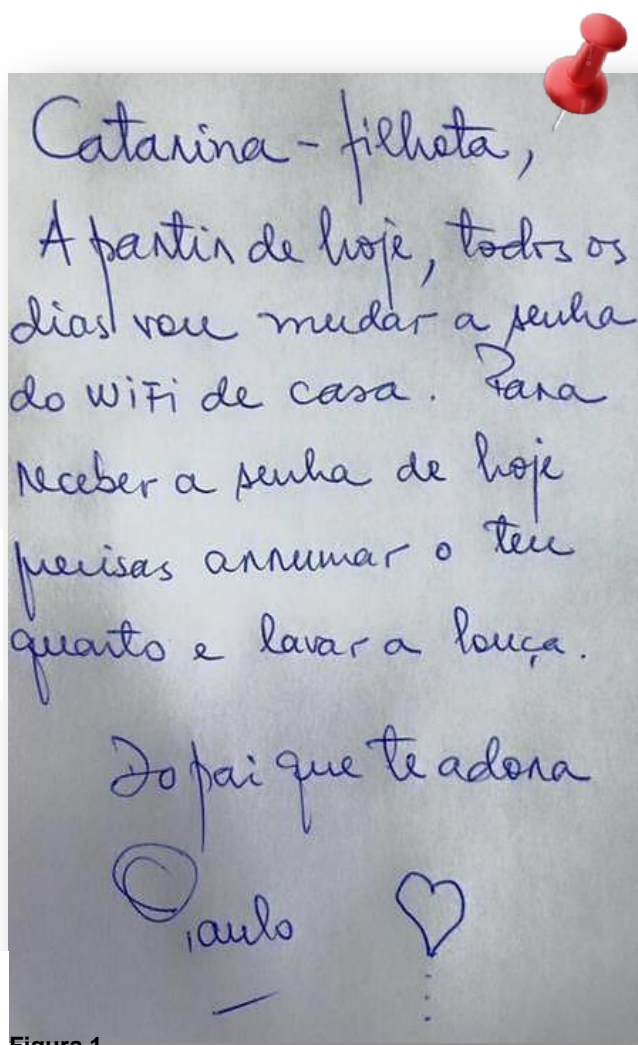 Catarina - filhota,
A partir de hoje, todos os
dias vou mudar a senha
do WiFi de casa. Para
receber a senha de hoje
precisas arrumar o teu
quarto e lavar a louça.
Do pai que te adora
Paulo
Figura 1